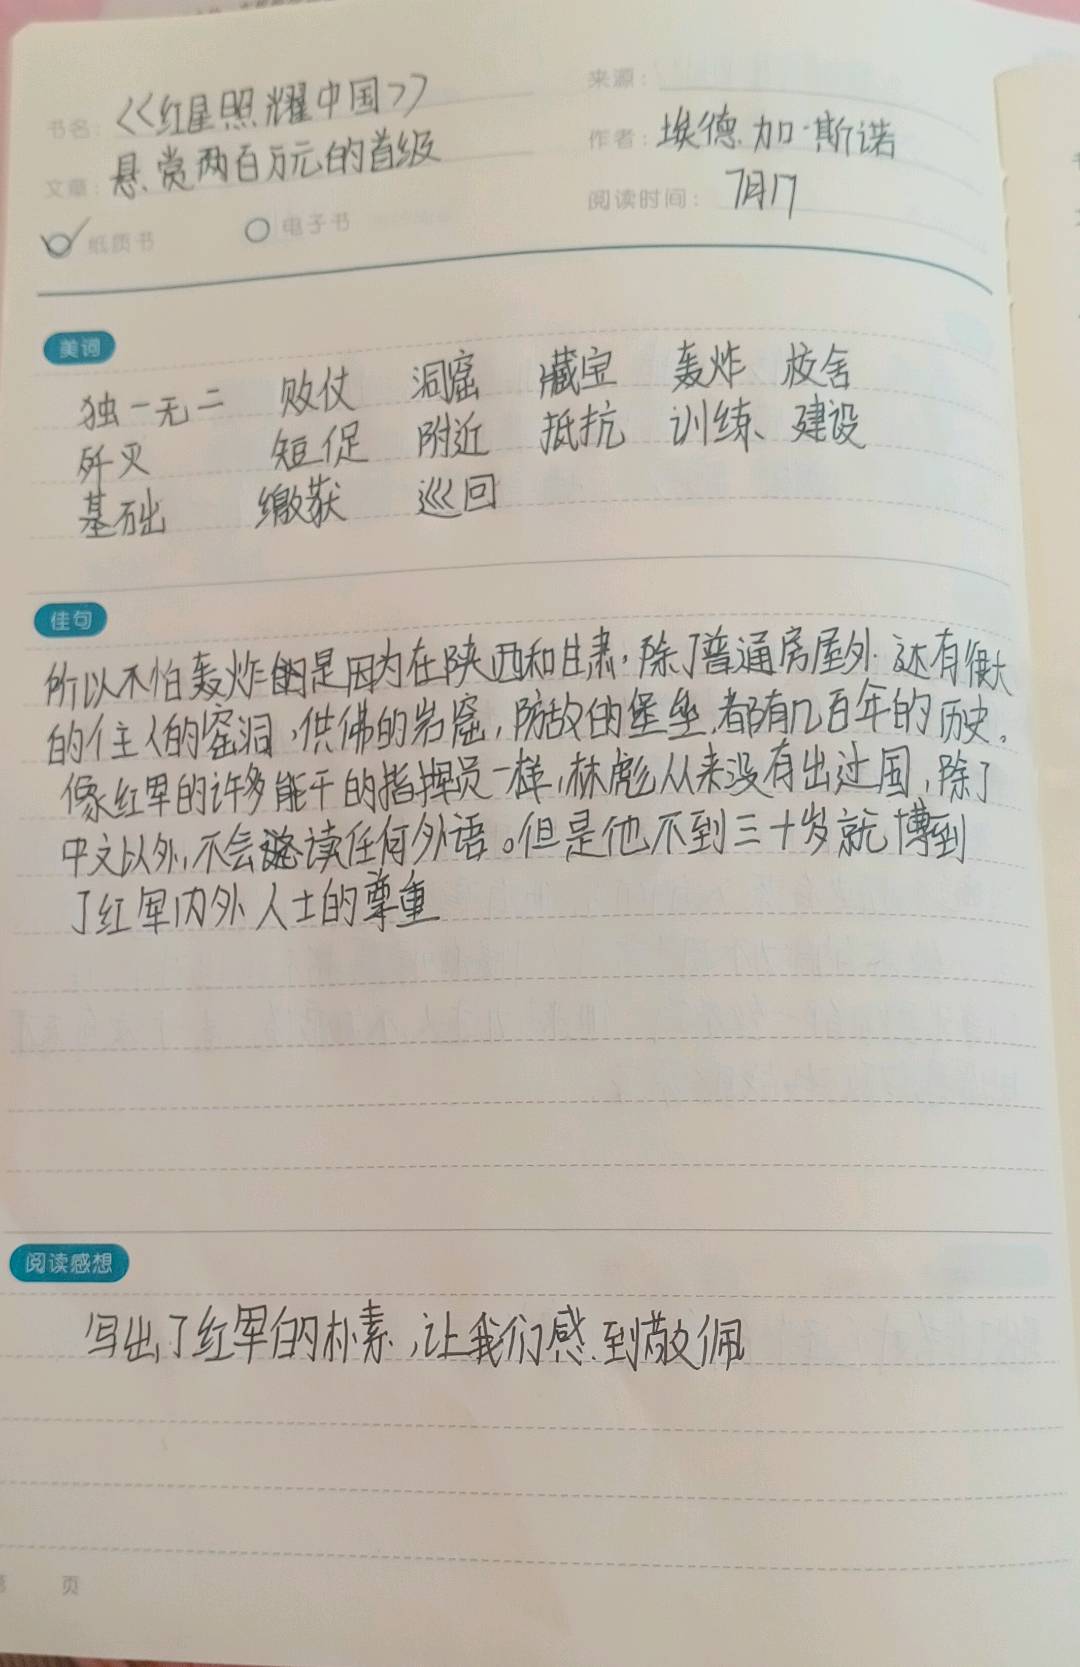 书名：《红星照耀中国》
来源：
文章：悬赏两百万元的首级
作者：埃德加·斯诺
纸质书 电子书
阅读时间：7月17
美词
独一无二 败仗 洞窟 藏宝 轰炸 校舍
歼灭 短促 附近 抵抗 训练 建设
基础 缴获 巡回
佳句
所以不怕轰炸的是因为在陕西和甘肃，除了普通房屋外 还有很大
的住人的窑洞，供佛的岩窟，防敌的堡垒，都有几百年的历史。
像红军的许多能干的指挥员一样，林彪从来没有出过国，除了
中文以外，不会说读任何外语。但是他不到三十岁就博到
了红军内外人士的尊重
阅读感想
写出了红军的朴素，让我们感到敬佩
页